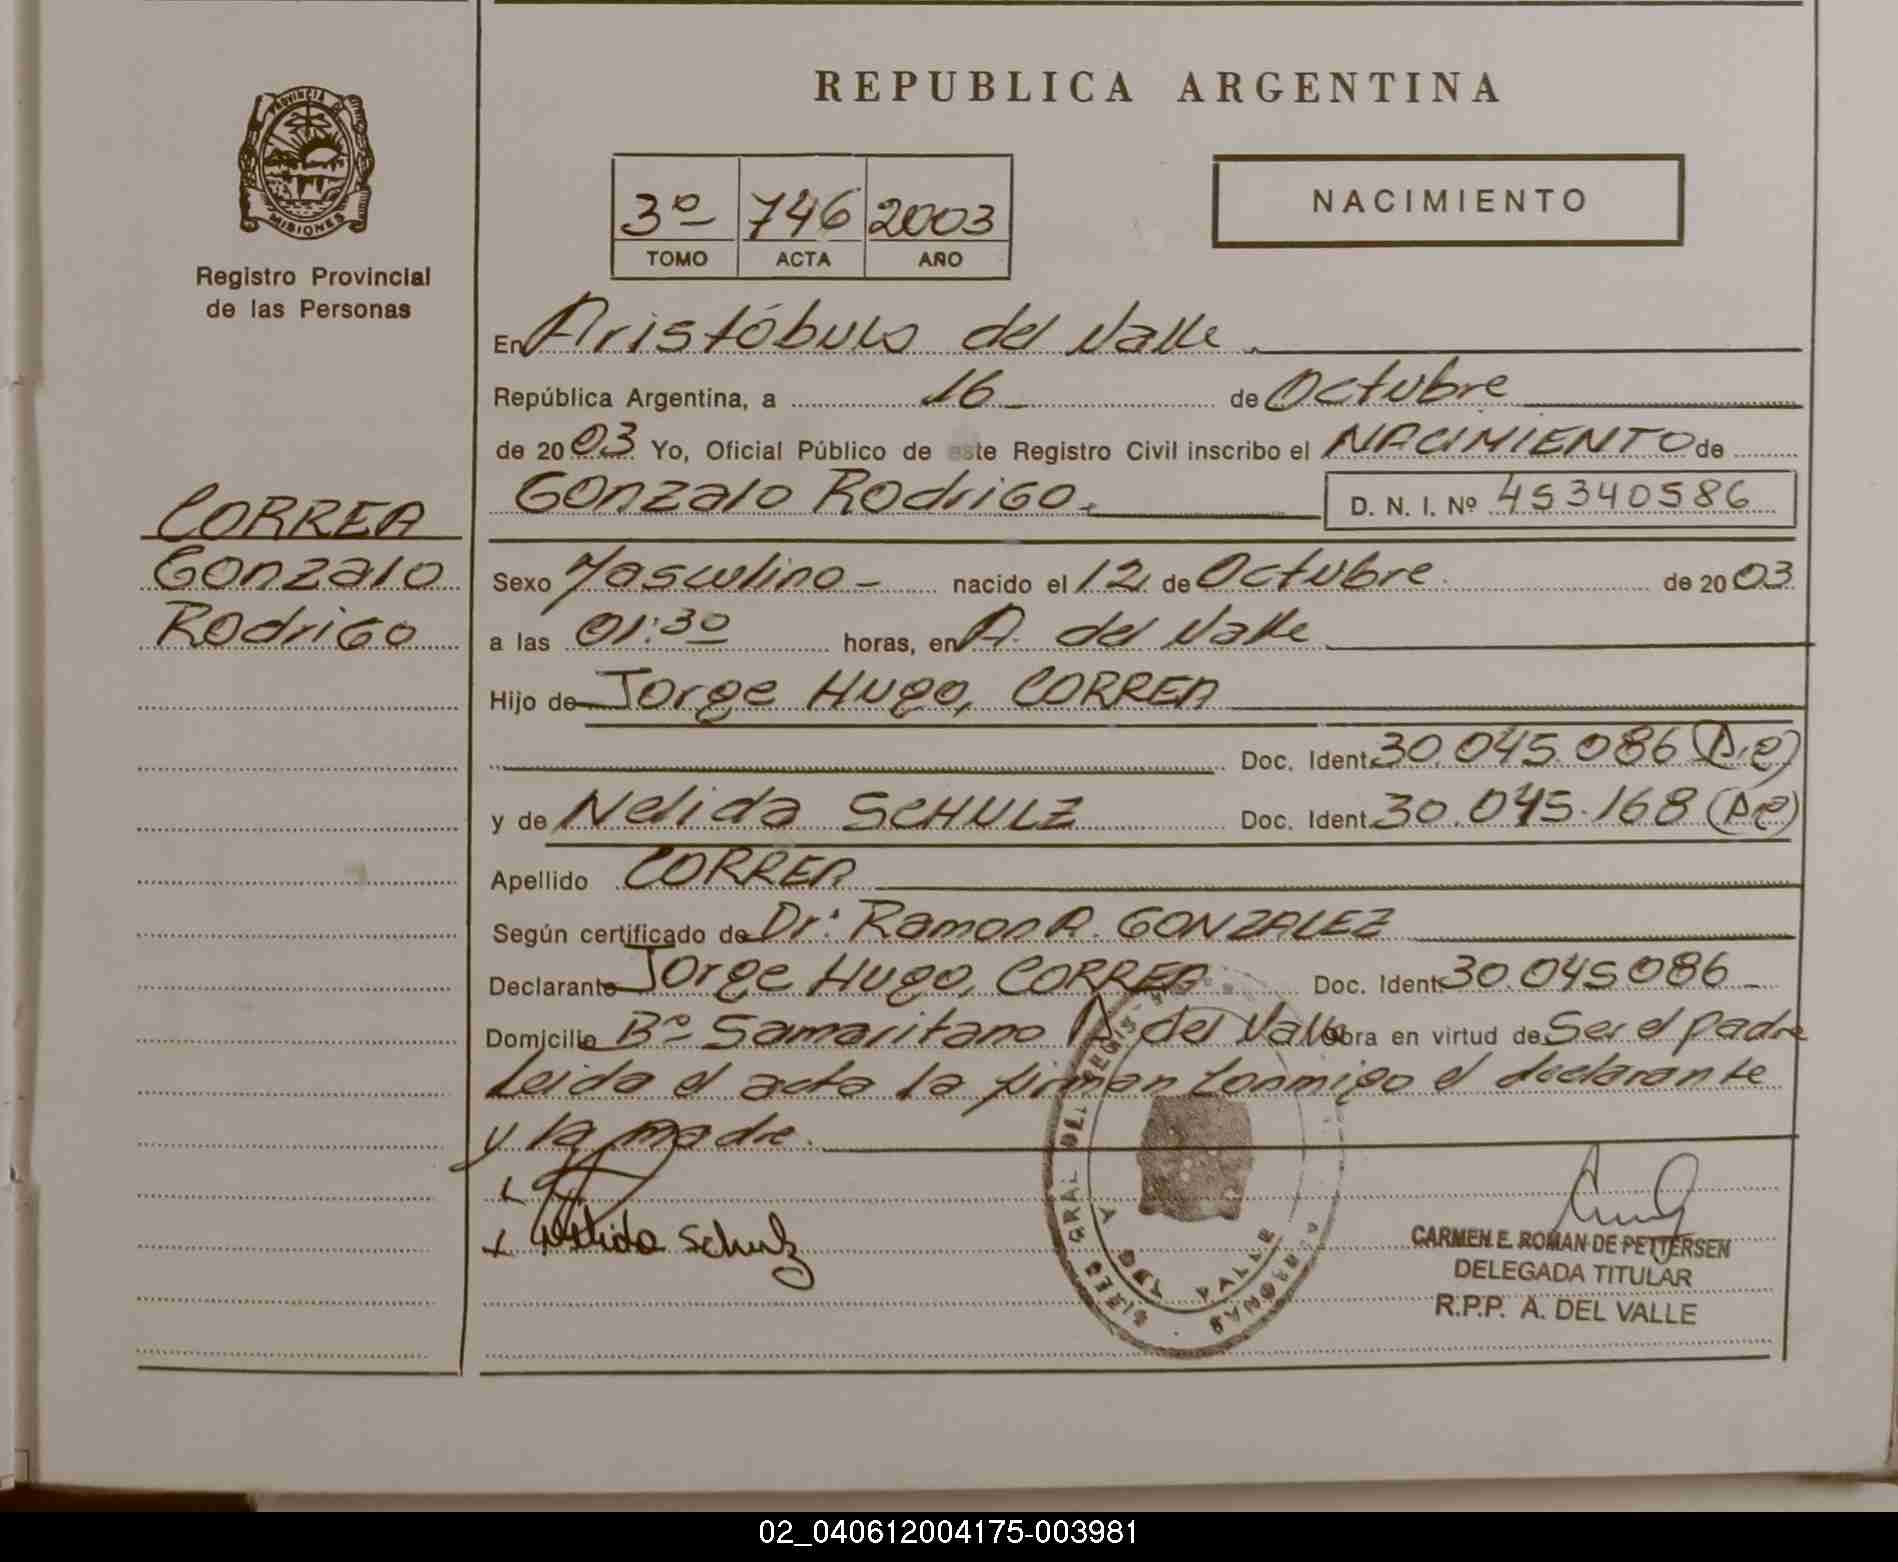 REPUBLICA ARGENTINA
PROVINCIA DE
MISIONES
Registro Provincial
de las Personas
3º 746 2003
TOMO ACTA AÑO
NACIMIENTO
CORREA
Gonzalo
Rodrigo
En Aristóbulo del Valle.
República Argentina, a 16 de Octubre
de 2003 Yo, Oficial Público de este Registro Civil inscribo el NACIMIENTO de
Gonzalo Rodrigo. D. N. I. Nº 45340586
Sexo Masculino - nacido el 12 de Octubre de 2003
a las 01:30 horas, en A. del Valle
Hijo de Jorge Hugo, CORREA
Doc. Ident. 30.045.086
y de Nelida SCHULZ Doc. Ident. 30.045.168
Apellido CORREA
Según certificado de Dr: Ramon A. GONZALEZ
Declarante Jorge Hugo, CORREA Doc. Ident. 30.045086
Domicilio Bº Samaritano A. del Valle obra en virtud de Ser el padre
Leida el acta la firman Conmigo el declarante
y la madre.
Nelida Schulz
A DEL VALLE
CARMEN E. ROMAN DE PETTERSEN
DELEGADA TITULAR
R.P.P. A. DEL VALLE
02_040612004175-003981